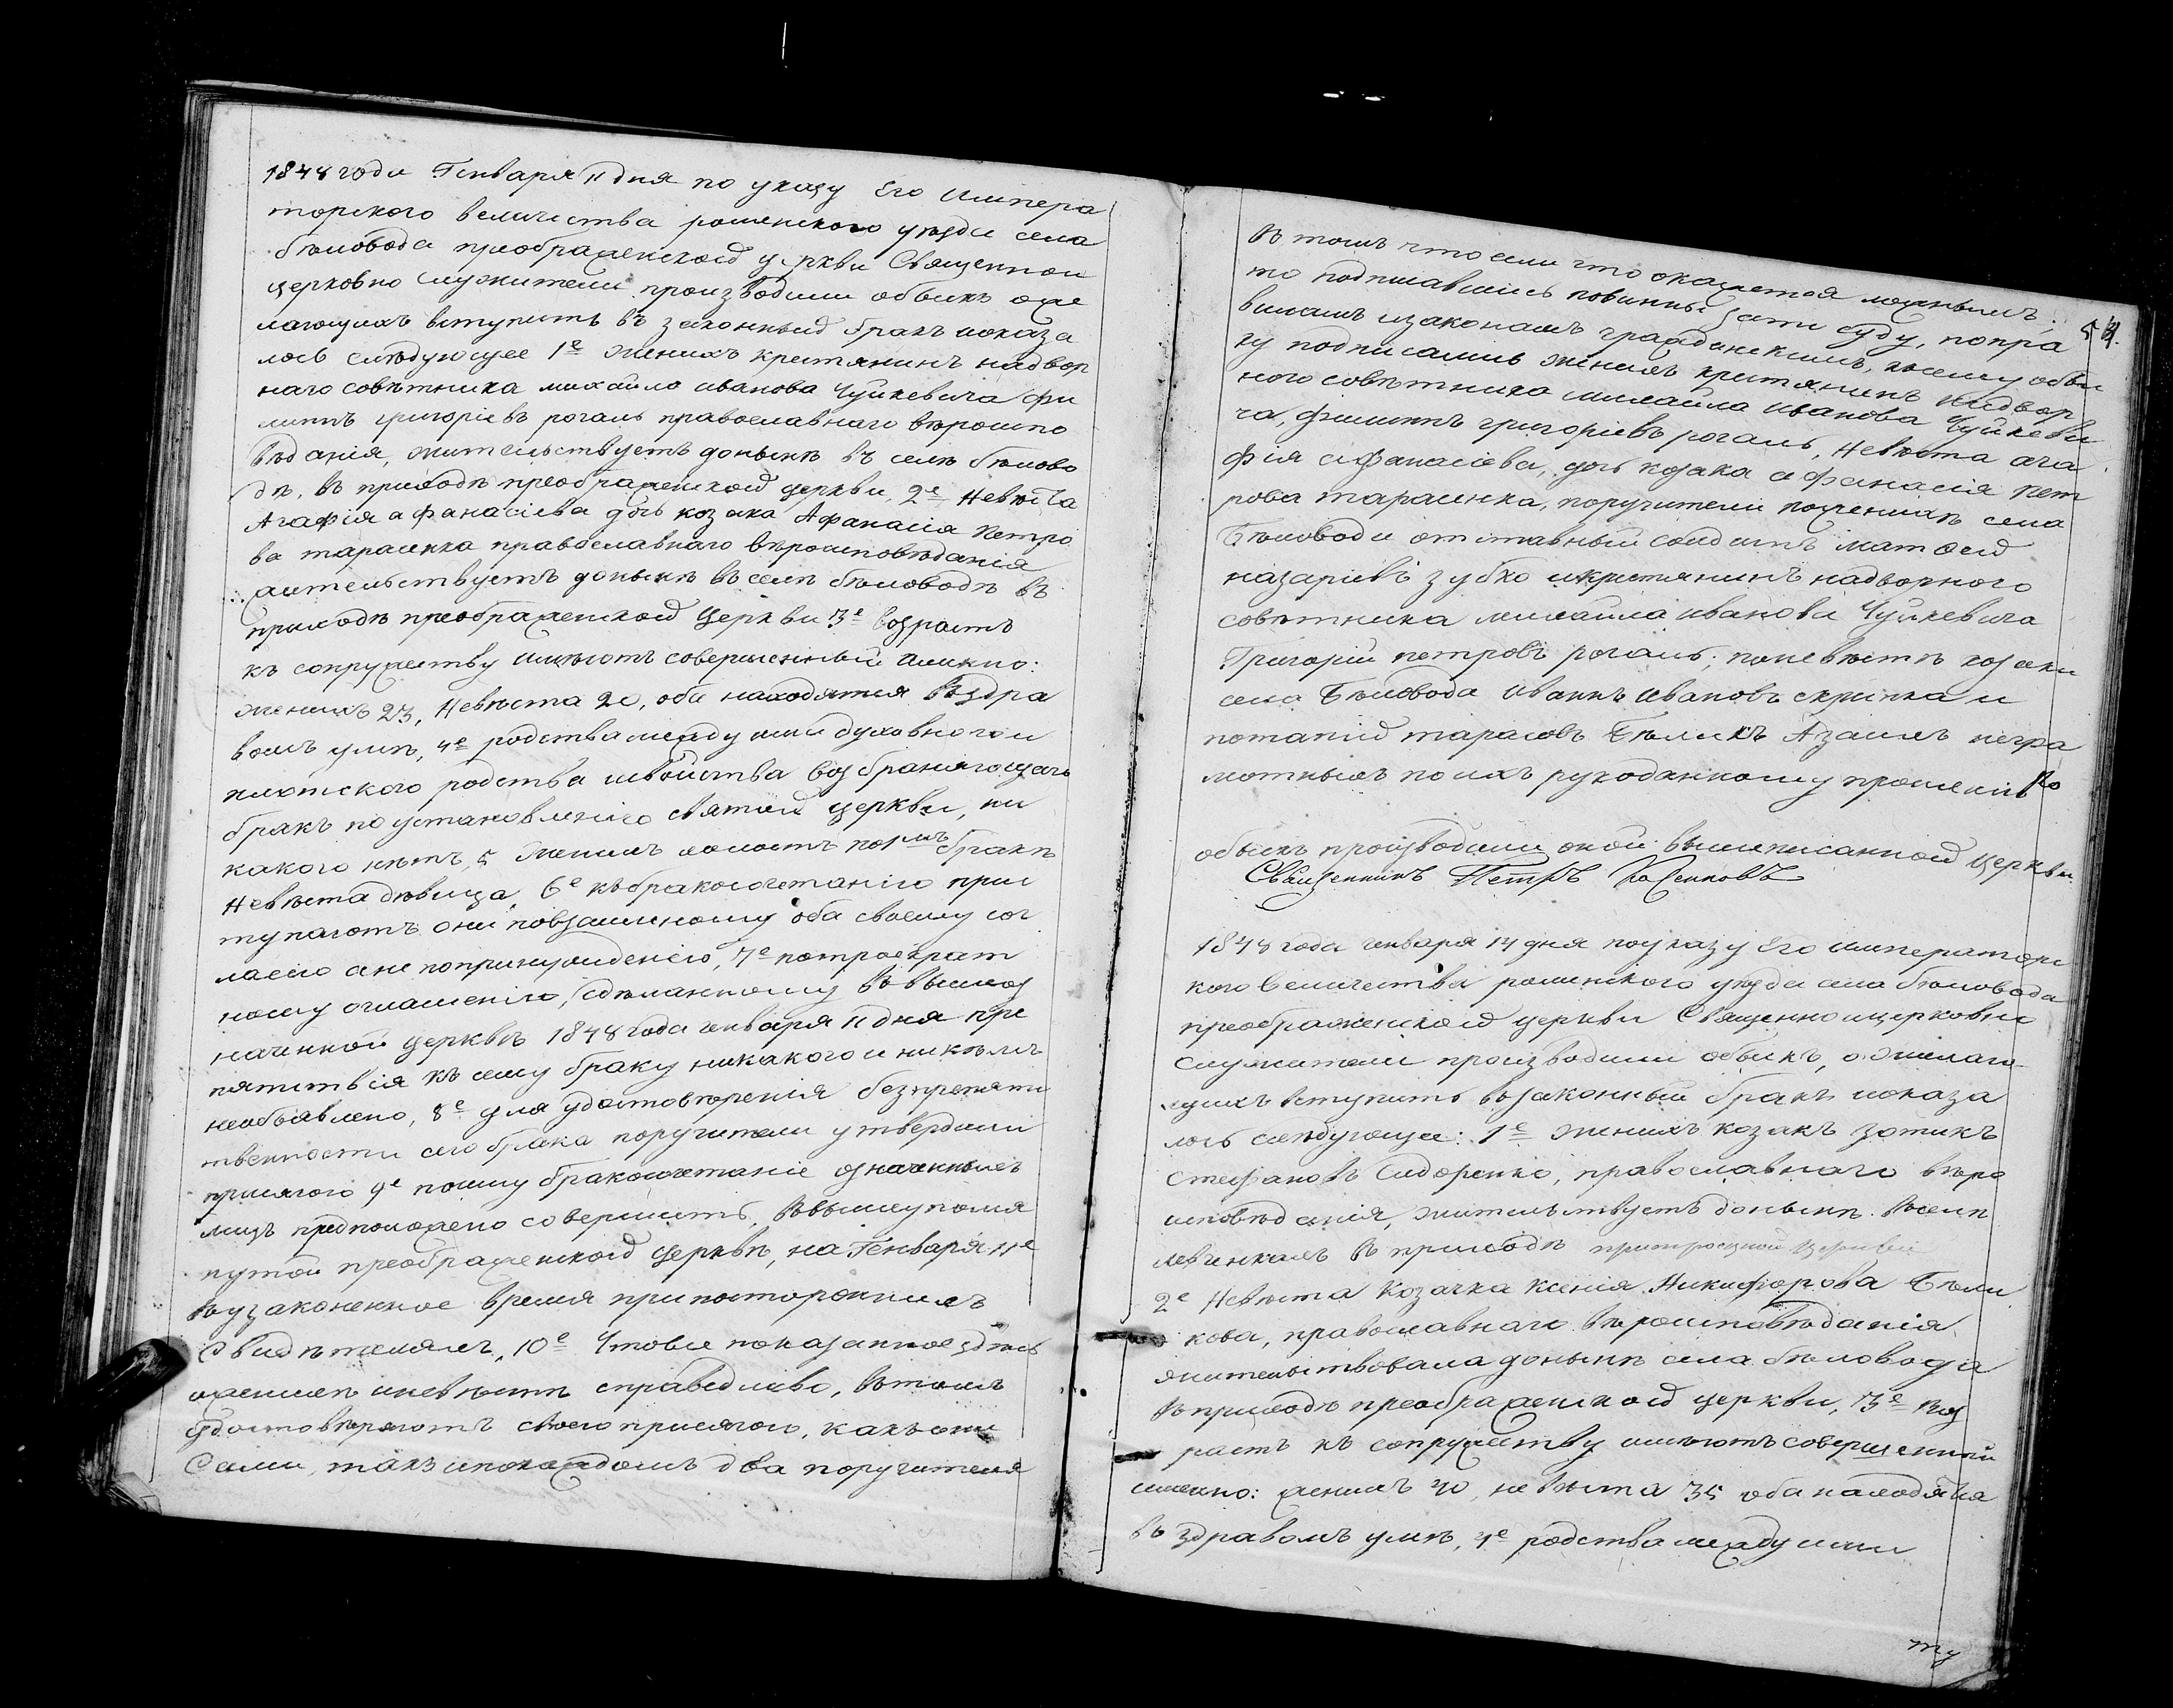 1848 года Генваря 11 дня по указу Его Импера
торского величества роменского уезда села
бѣловода преображенской церкви Священнои
церковно служители производили обыскъ оже
лающихъ вступить въ законный бракъ иоказа
лось слѣдующее 1е Женихъ крестянинъ надвор
наго совѣтника михайло иванова Чуйкевича фи
липъ григоріевъ рогаль православнаго вѣроиспо
вѣданія, жительствуетъ донынѣ въ селѣ бѣлово
дѣ, въ приходѣ преображенской церкви, 2е Невѣста
Агафія афанасіева дочь козака Афанасія Петро
ва тарасенка православнаго вѣроисповѣданія
жительствуетъ донынѣ въ селѣ бѣловодѣ въ
приходѣ преображенской Церкви 3е возрастъ
къ сопружеству имѣютъ совершенный имянно:
женихъ 23, Невѣста 20, оба находятся въздра
вомъ умѣ, 4е родства между ими духовного и
плотского родства исвойства возбраняющаго
бракъ по установленію святой церкви, ни
какого нѣтъ, 5 Женихъ холостъ по1мъ бракѣ
Невѣста дѣвица, 6е къ бракосочетанію прис
тупаютъ они повзаимному оба своему сог
ласію ане попринужденію, 7е потроекрат
ному оглашенію, сдѣланному въ вышеоз
наченной церквѣ 1848 года генваря 11 дня пре
пятствія къ сему браку никакого и никѣмъ
необъявлено, 8е для удостовѣренія безпрепятс
твенности сего брака поручители утвердили
присягою 9е посему бракосочетаніе означенныхъ
лицъ предположено совершить, въвышеупомя
нутой преображенской Церквѣ, на Генваря 11е
въузаконенное время при постороннихъ
Свидѣтеляхъ, 10е Чтовсе показанное здѣсь
оженихѣ иневѣстѣ справедливо, вътомъ
удостовѣряютъ своею присягою, какъ они
Сами, такъ ипокаждомъ два поручителя
въ томъ что если что окажется ложнымъ;
то подписавшиесь повинны зато суду, попра
5
виламъ изаконамъ гражданскимъ, ксему обыс
ку подписались женихъ крестянинъ надвор
ного совѣтника михаила иванова Чуйкеви
ча, филиппъ григоріевъ рогаль, Невѣста ага
фія афанасіева, дочь козака афанасія Пет
рова тарасенка, поручители поженихѣ села
Бѣловода отставный солдатъ матфей
назаріевъ зубко икрестянинъ надворного
совѣтника михаила иванова Чуйкевича
Григорій петровъ рогаль; поневѣстѣ козаки
села Бѣловода иванъ ивановъ скрипка и
потапій тарасовъ Бѣликъ Азаихъ негра
мотныхъ по ихъ рукоданному прошенію
обыскъ производили оной вышеписанной Церкви
Священникъ Петръ
1848 года генваря 14 дня поуказу Его императорс
кого величества роменского уезда села бѣловода
преображенской церкви Священноицерковно
служители производили обыскъ, о желаю
щихъ вступить възаконный бракъ иоказа
лось слѣдующее: 1е женихъ козакъ зотикъ
Стефановъ Сидоренко, православнаго вѣро
исповѣданія, жительствуетъ донынѣ въселѣ
въ приходѣ
2е Невѣста Козачка Ксенія Никифорова Бѣли
кова, православнаго вѣроисповѣданія
жительствовала донынѣ села бѣловода
въ приходѣ преображенской церкви, 3е воз
растъ къ сопружеству имѣютъ совершенный
имянно: женихъ 40, невѣста 35 оба находятся
въ здравомъ умѣ, 4е родства между ими
ту